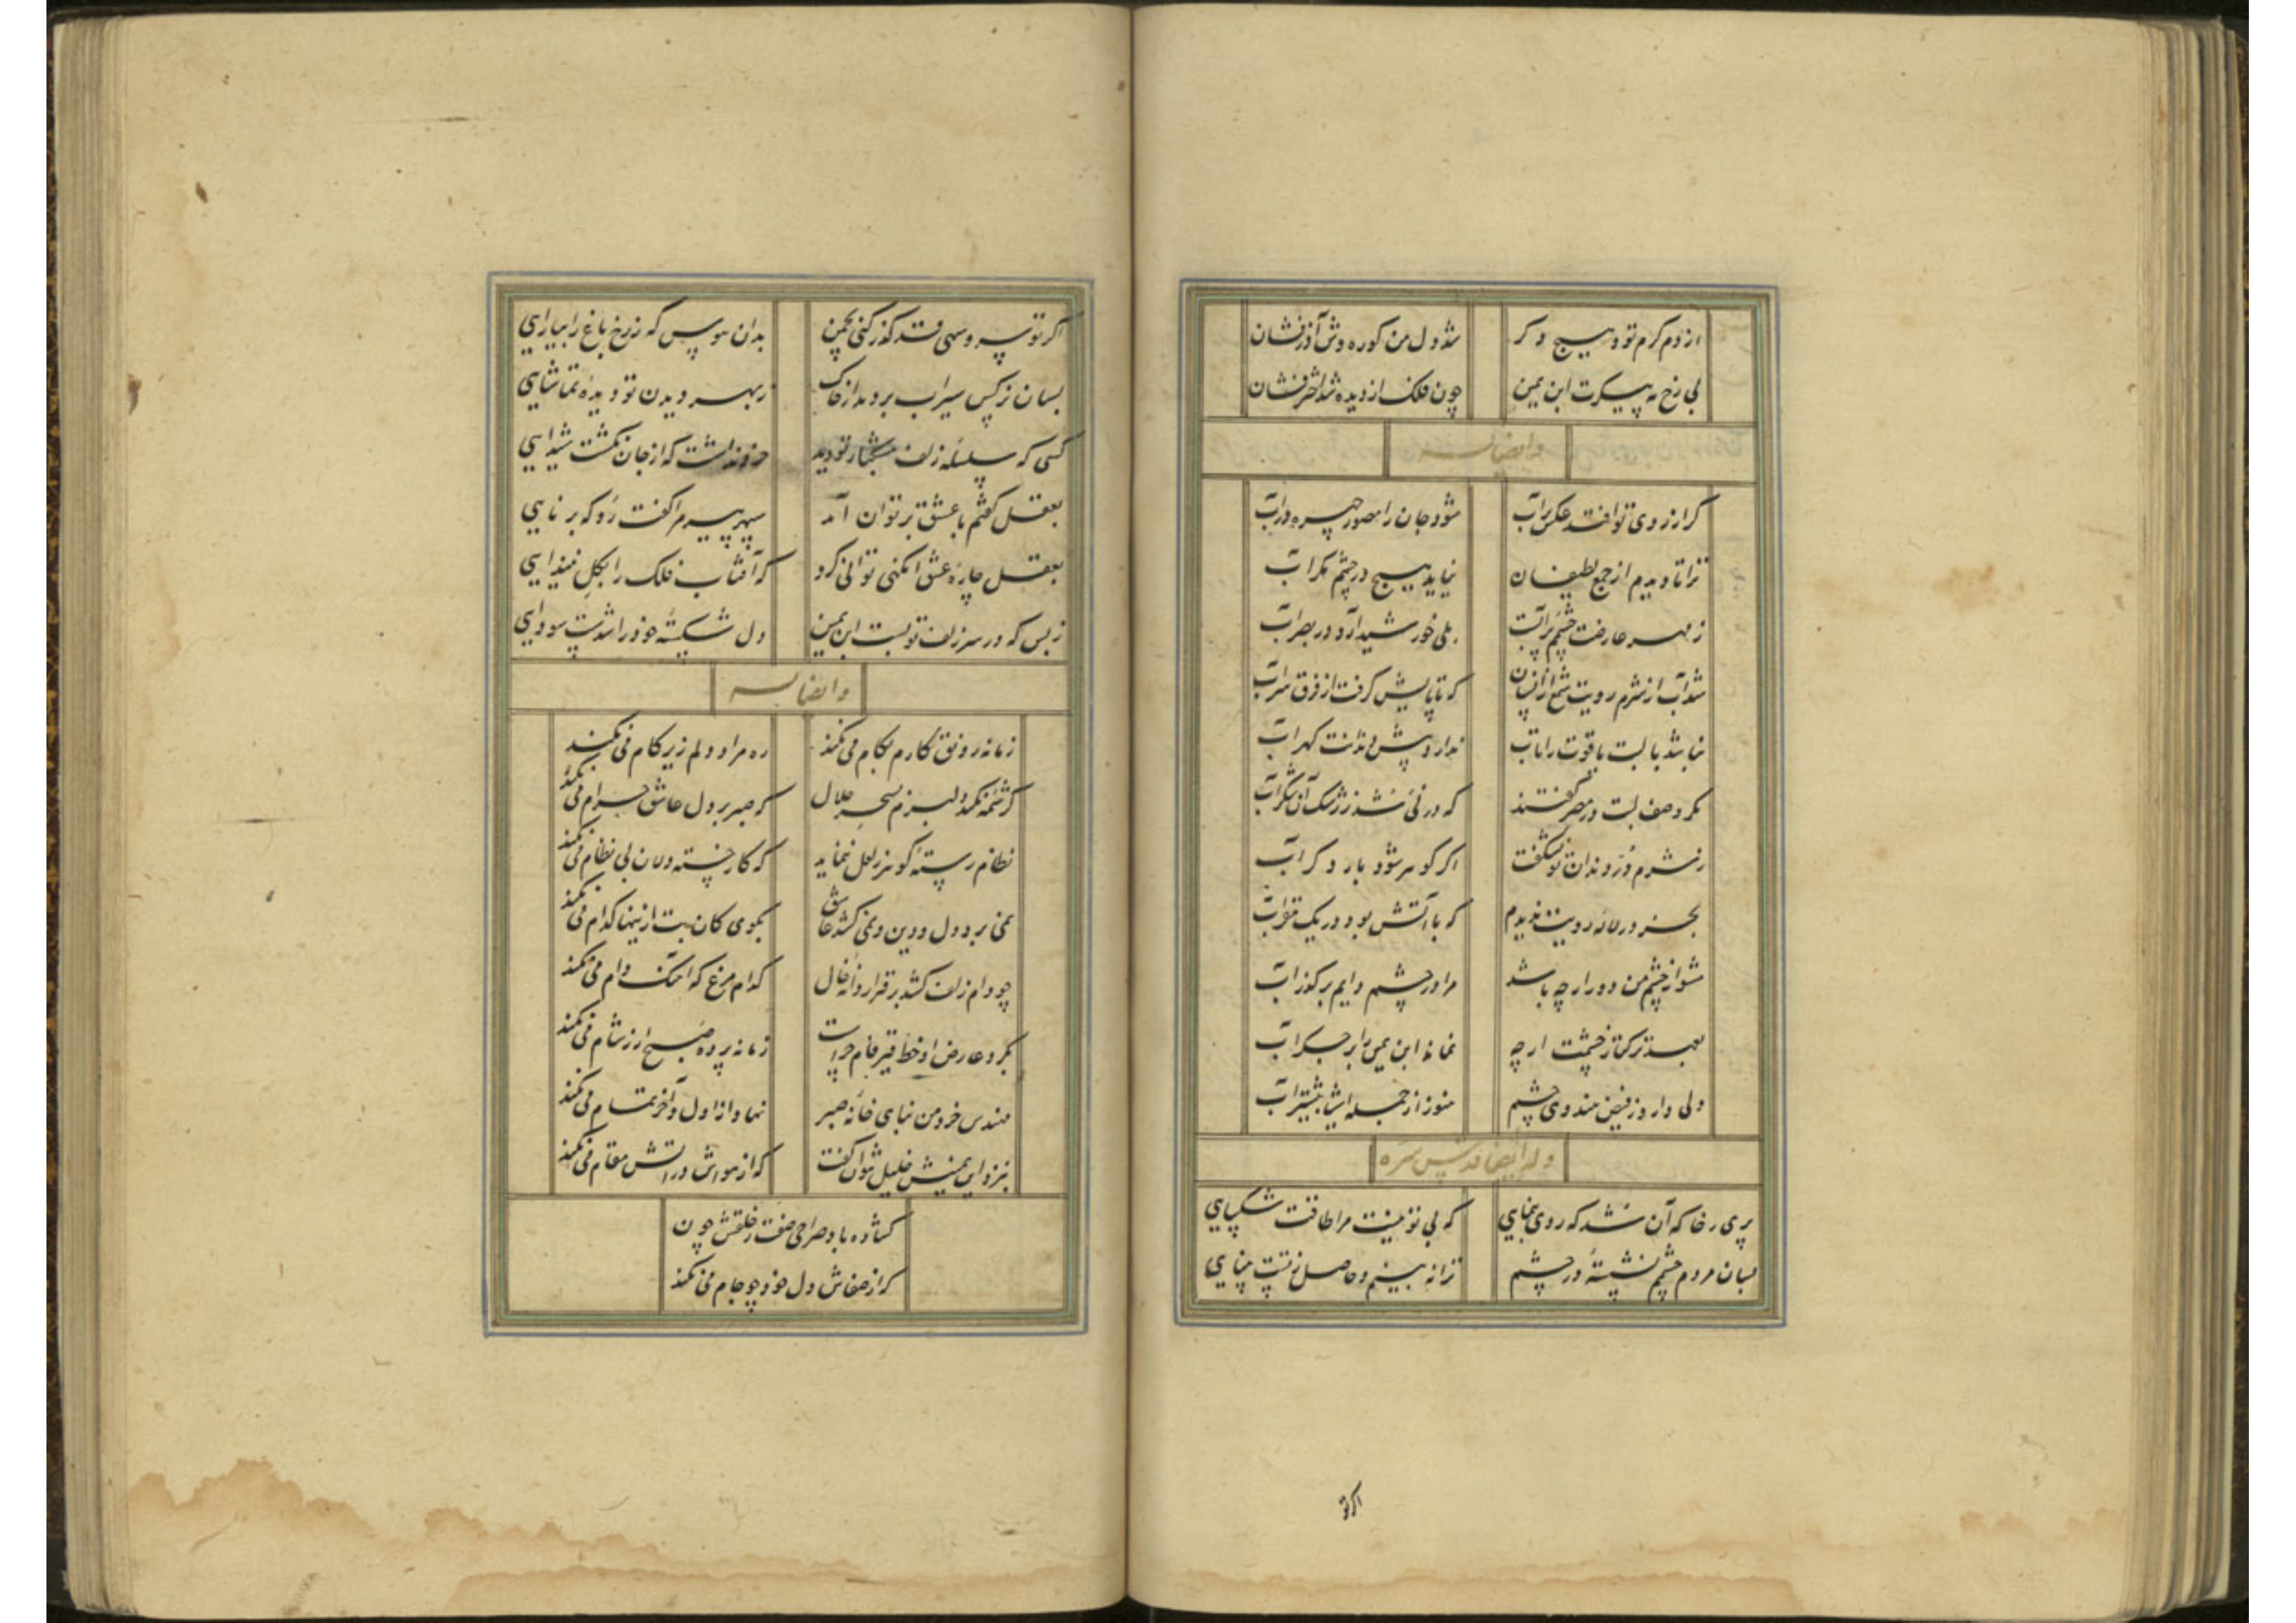 از دم کرم تو دمیسج دکر شد دل من کوره وش آذرفشان
بی رخ مه پیکرت ابن یمین چون فلک از دیده شد اخترفشان
وایضا له
کر از روی تو افتد عکس بر آب شود جان را مصور چهره در آب
ترا تا دیدم از جمع لطیفان نیاید هیج در چشم مکر آب
ز مهر عارضت چشمم پر آبست بلی خورشید آرد در بصر آب
شد آب از شرم رویت شمع از انسان که تا پایش کرفت از فرق سر آب
نباشد با لبت یاقوت را تاب ندارد پیش دندانت کهر آب
مکر وصف لبت در مصر کفتند که در نی شد ز رشک آن شکر آب
ز شرم در دندان تو نشکفت اکر کوهر شود بار دکر آب
بجز در لاله رویت ندیدم که با آتش بود در یک مقر آب
مشو از چشم من دور ار چه باشد مرا در چشم دایم بر کذر آب
ترکتاز چشمت ار چه نماند ابن یمین را بر جکر آب
ولی دارد ز فیض هندوی چشم هنوز از جمله اینها بیشتر آب
وله ایضا قدس سره
پری رخا که آن شد که روی بنمایی که بی تو نیست مرا طاقت شکیبایی
بسان مردم چشمم نشسته در چشم ترا نه بینم و حاصل ز تست بینایی
اکر تو
اکر تو سرو سهی قد کذر کنی بچمن بدان هوس که ز رخ باغ را بیارایی
بسان نرکس سیراب بر دمد از خاک ز بهر دیدن تو دیده تماشایی
کسی که سلسله زلف مشکبار تو دید خرد نداشت که از جان نکشت شیدایی
بعقل کفتم با عشق بر توان آمد سپهر پیرم را کفت رو که برنایی
بعقل چاره عشق ای کنی توانی کرد که آفتاب فلک را بکل نیندایی
ز بس که در سر زلف تو بست ابن یمین دل شکسته خود را شدست سودایی
وایضا له
زمانه رونق کارم بکام می نکند ره مراد دلم زیر کام می نکند
کرشمه نکند دلبرم بسحر حلال که صبر بر دل عاشق حرام می نکند
نظام رسته کوهر ز لعل ننماید که کار خسته دلان بی نظام می نکند
نمی برد دل و دین و نمی کشد عاشق بکوی کان بت ازینها کدام می نکند
چو دام زلف کشد بر قرار دانه خال کدام مرغ که آهنک دام می نکند
بکرد عارض او خط قیرفام چراست زمانه پرده صبح ار ز شام می نکند
مهندس خرد من بنای خانه صبر نهاد از اول و آخر تمام می نکند
بنزد ابن یمینش خلیل نتوان کفت که از هواش در آتش مقام می نکند
کشاده باد صراحی صفت ز حلقش خون
کر از صفاش دل خود چو جام می نکند